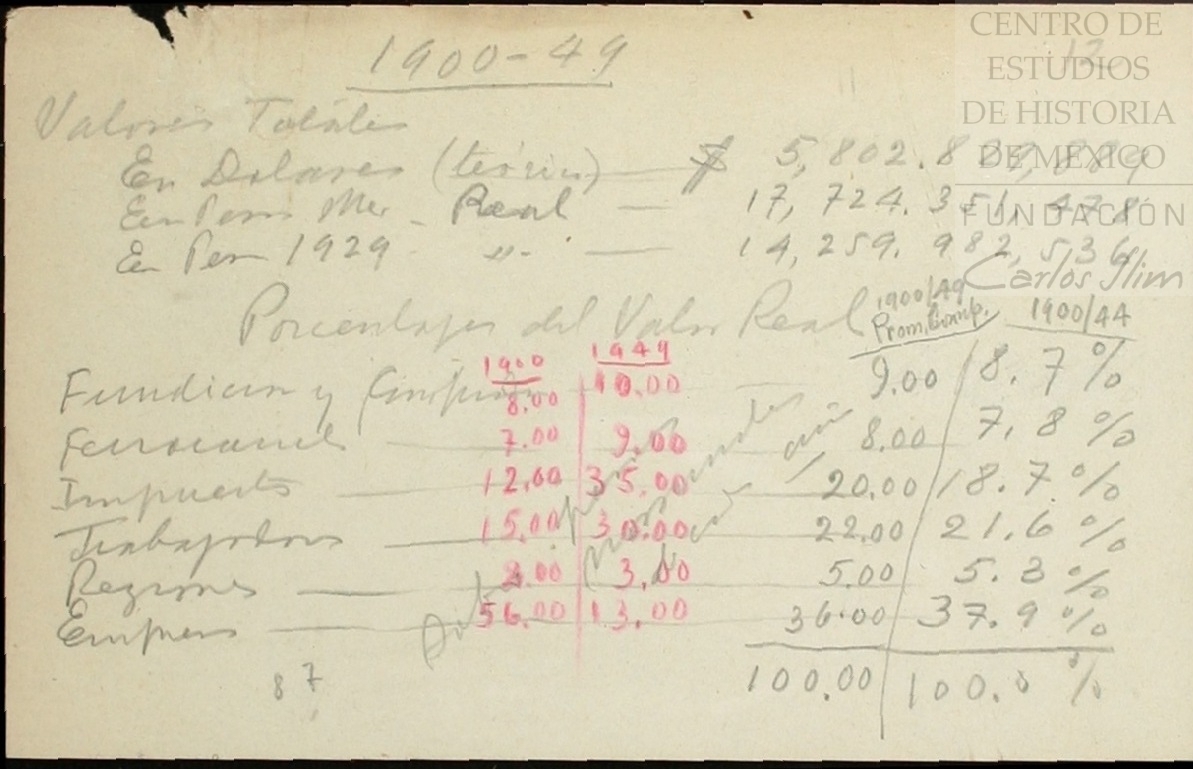 CENTRO DE
ESTUDIOS
DE HISTORIA
DE MÉXICO
FUNDACIÓN
Carlos Slim
12
1900-49
Valores Totales
En Dolares (teórico) — $ 5,802.8
En Pesos Mex - Real — 17,724.351,478
En Pesos 1929 " — 14,259.982,536
Porcentajes del Valor Real 1900/49 Prom. Comp. 1900/44
1900 1949
Fundicion y 8.00 10.00 — 9.00 8.7 %
Ferrocarril — 7.00 9.00 8.00 7,8 %
Impuesto — 12.00 35.00 20.00 18.7 %
Trabajadores — 15.00 30.00 22.00 21.6 %
Regiones — 2.00 3.00 5.00 5.3 %
Empresa — 56.00 13.00 36.00 37.9 %
100.00 100.0 %
8 7